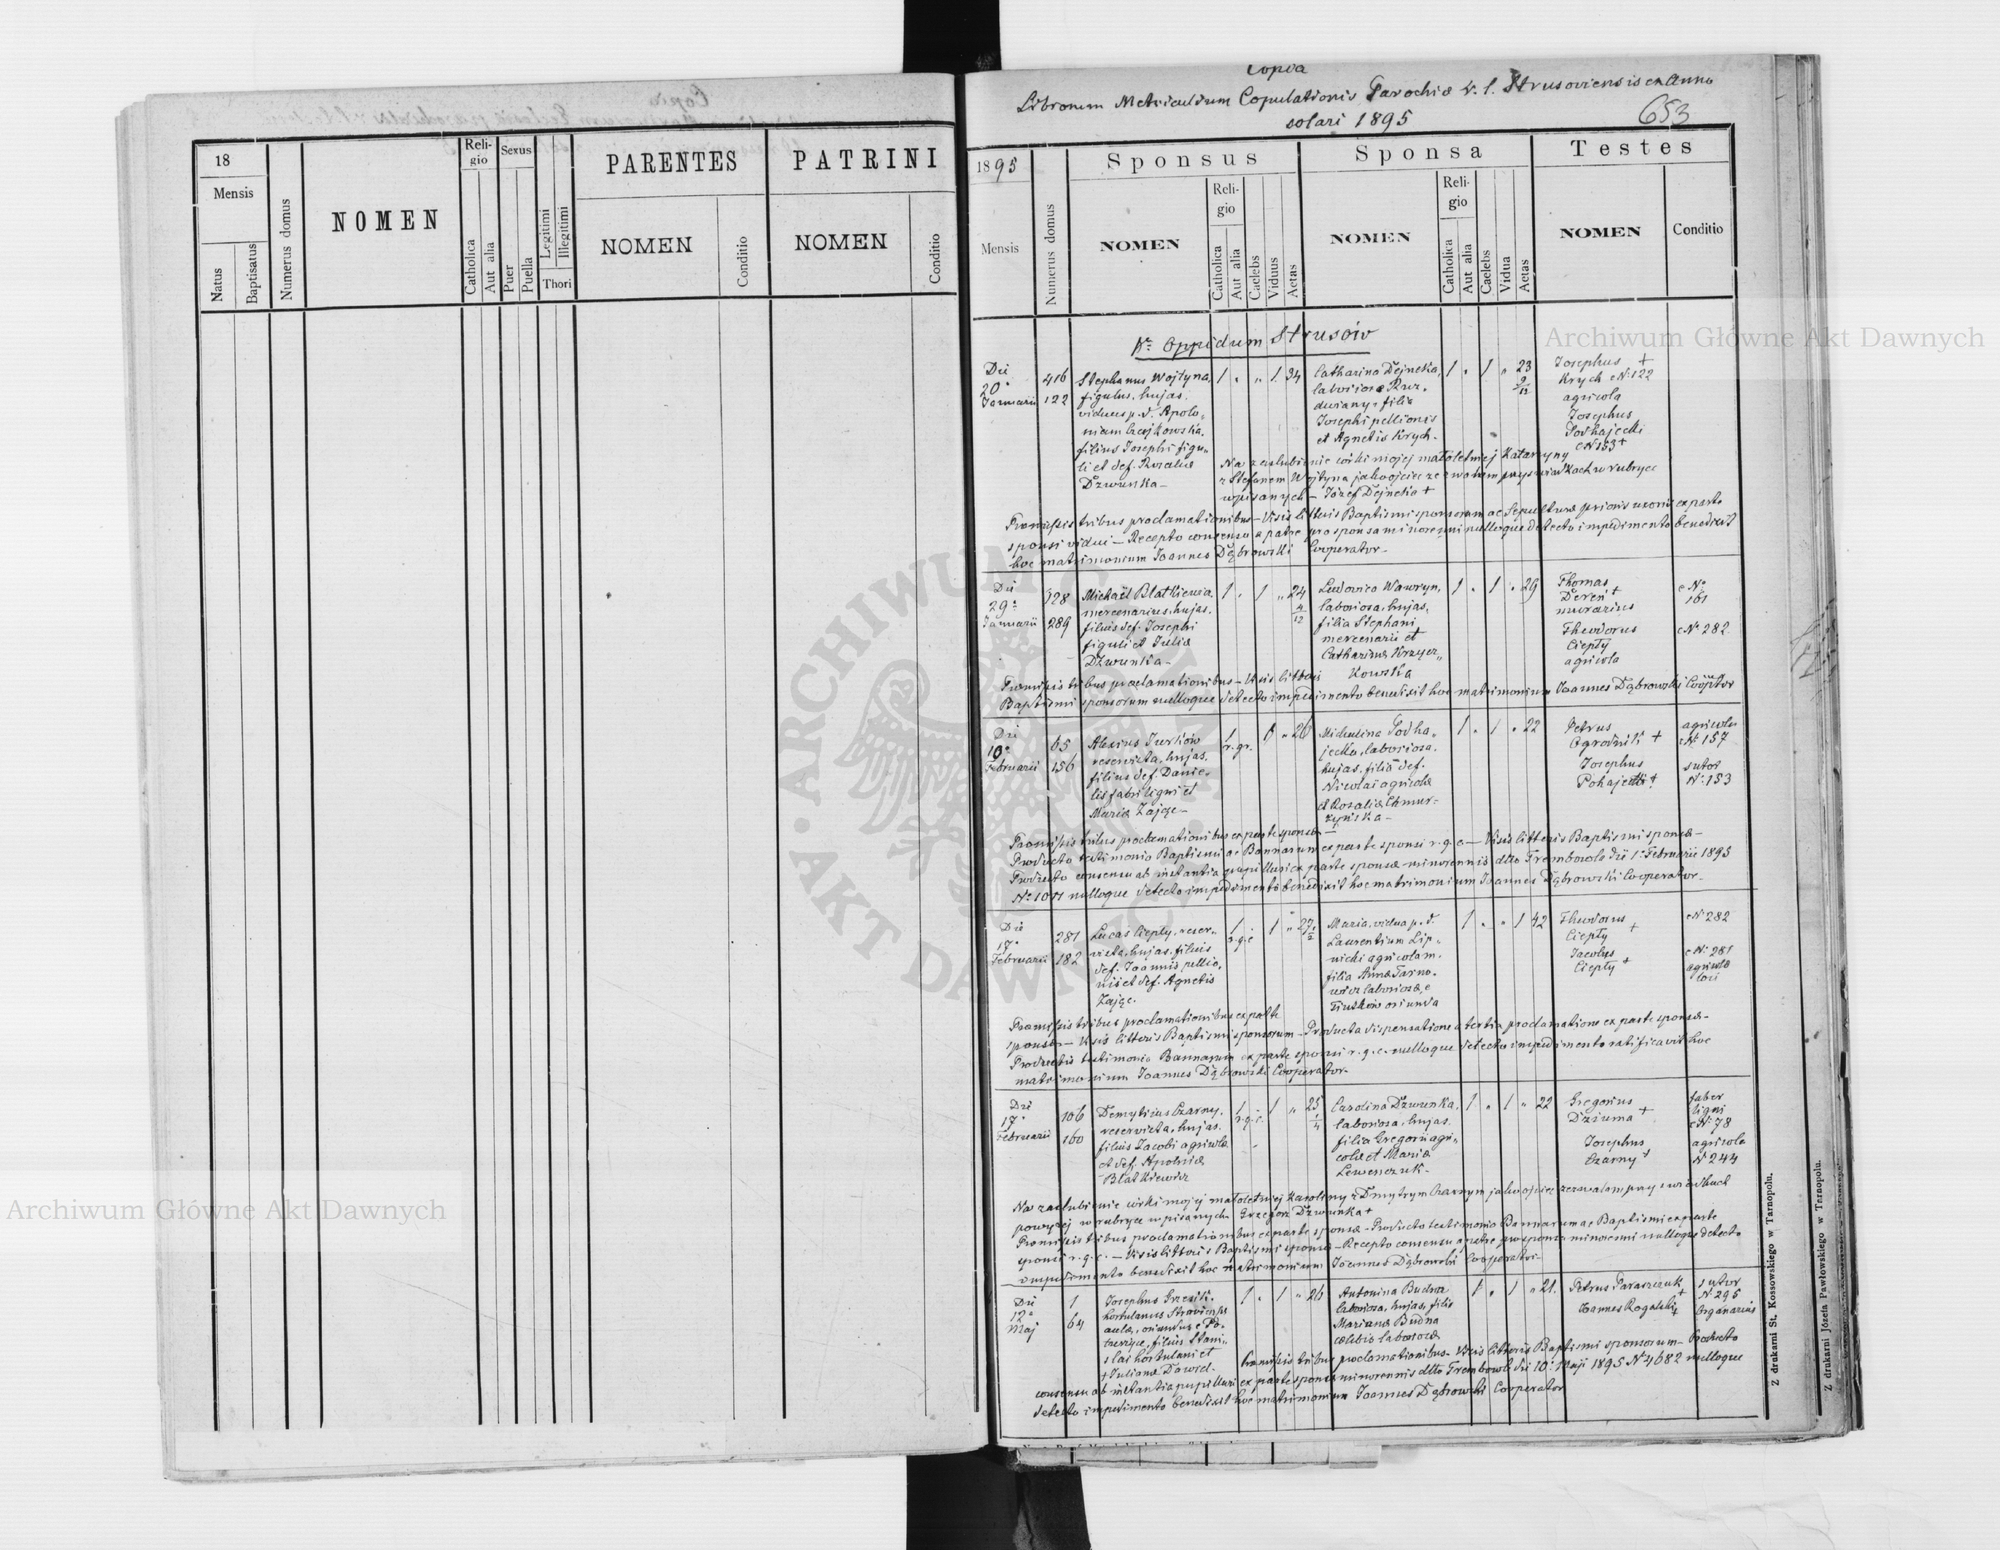 Copia
Librorum Metricalium Copulationis Parochiæ r. l. Strusoviensis ex Anno
solari 1895
653
18
Mensis
Natus
Baptisatus
Numerus domus
NOMEN
Religio
Catholica
Aut alia
Sexus
Puer
Puella
Legitimi
Illegitimi
Thori
PARENTES
NOMEN
Conditio
PATRINI
NOMEN
Conditio
1895
Mensis
Numerus domus
Sponsus
NOMEN
Religio
Catholica
Aut alia
Caelebs
Viduus
Aetas
Sponsa
NOMEN
Religio
Catholica
Aut alia
Caelebs
Vidua
Aetas
Testes
NOMEN
Conditio
Oppidum Strusów
Die
20ª
Januarii
416
122
Stephanus Wojtyna,
figulus, hujas,
viduus p. d. Apolo-
niam
filius Josephi figu-
li et def. Rosaliæ
Dzwunka —
1 " " 1 34
Catharina Dejneka,
laboriosa
filia
Josephi pellionis
et Agnetis Krych.
1 " 1 " 23
9/12
Josephus +
Krych cN: 122
agricola
Josephus
Podhajecki
cN 153 +
Na zaslubienie córki mojej małoletniej Katarzyny
z Stefanem Wojtyna jako ojciec zezwalam przy swiadkach w rubryce
wpisanych — Józef Dejneka +
Præmissis tribus proclamationibus — Visis litteris Baptismi sponsorum ac Sepulturæ prioris uxoris ex parte
sponsi vidui — Recepto consensu a patre pro sponsa minorenni nulloque detecto impedimento benedixit
hoc matrimonium Joannes Dąbrowski Cooperator —
Die
29ª
Januarii
328
289
Michaël Blatkiewicz
mercenarius, hujas,
filius def. Josephi
figuli et Juliæ
Dzwunka —
1 " 1 " 24
4/12
Ludovica Wawryn,
laboriosa, hujas,
filia Stephani
mercenarii et
Catharinæ Krzycz-
kowska
1 " 1 " 29
Thomas
Dereń +
murarius
Theodorus
Ciepły
agricola
cNo
161
cN: 282
Præmissis tribus proclamationibus — Visis litteris
Baptismi sponsorum nulloque detecto impedimento benedixit hoc matrimonium Joannes Dąbrowski Cooptor
Die
10ª
Februarii
65
156
Alexius Jurków
reservista, hujas,
filius def. Danie-
lis fabri ligni et
Mariæ Zając —
1 r. gr. 1 " 26
Michalina Podha-
jecka, laboriosa,
hujas, filia def.
Nicolai agricolæ
et Rosaliæ Chmur-
zyńska —
1 " 1 " 22
Petrus
Ogrodnik +
Josephus
Pohajecki +
agricola
cN: 157
sutor
N: 153
Præmissis tribus proclamationibus ex parte sponsæ —
Producto testimonio Baptismi ac Bannorum ex parte sponsi r. g. c. — Visis litteris Baptismi sponsæ —
Producto consensu ab instantia pupillari ex parte sponsæ minorennis dtto Trembowla die 1: Februarii 1895
N: 1011 nulloque detecto impedimento benedixit hoc matrimonium Joannes Dąbrowski Cooperator —
Die
17ª
Februarii
281
182
Lucas Ciepły, reser-
vista, hujas, filius
def. Joannis pellio-
nis et def. Agnetis
Zając.
1 r. g. c. 1 " 27
Maria, vidua p. d.
Laurentium Lip-
nicki agricolam,
filia Annæ Tarno-
wicz laboriosæ, e
oriunda
1 " " 1 42
Theodorus
Ciepły +
Jacobus
Ciepły +
cN: 282
cN: 281
agricolæ
loci
Præmissis tribus proclamationibus ex parte
sponsæ — Visis litteris Baptismi sponsorum — Producta dispensatione a tertia proclamatione ex parte sponsæ —
Producto testimonio Bannorum ex parte sponsi r. g. c. nulloque detecto impedimento ratificavit hoc
matrimonium Joannes Dąbrowski Cooperator —
Die
17ª
Februarii
106
160
Demytrius Czarny,
reservista, hujas,
filius Jacobi agricolæ
et def. Apoloniæ
Blatkiewicz
1 r. g. c. 1 " 25
1/4
Carolina Dzwunka,
laboriosa, hujas,
filia Gregorii agri-
colæ et Mariæ
Lewenczuk —
1 " 1 " 22
Gregorius
Dziuma +
Josephus
Czarny +
faber
ligni
cN: 78
agricola
N 244
Na zaslubienie córki mojej małoletniej Karoliny z Dmytrym Czarnym jako ojciec zezwalam przy swiadkach
powyżej w rubryce wpisanych Grzegorz Dzwunka +
Præmissis tribus proclamationibus ex parte sponsæ — Producto testimonio Bannorum ac Baptismi ex parte
sponsi r. g. c. — Visis litteris Baptismi sponsæ — Recepto consensu a patre pro sponsa minorenni nulloque detecto
impedimento benedixit hoc matrimonium Joannes Dąbrowski Cooperator —
Die
12ª
Maj
1
64
Josephus
hortulanus
aulæ, oriundus e
filius Stani-
slai hortulani et
Julianæ Dawid.
1 " 1 " 26
Antonina Budna
laboriosa, hujas, filia
Mariannæ Budna
cælebis laboriosæ
1 " 1 " 21.
Petrus Paraszczuk +
Joannes Rogalski +
sutor
N: 295
Organarius
Præmissis tribus proclamationibus — Visis litteris Baptismi sponsorum — Producto
consensu ab instantia pupillari ex parte sponsæ minorennis dtto Trembowla die 10: Maji 1895 N 4682 nulloque
detecto impedimento benedixit hoc matrimonium Joannes Dąbrowski Cooperator
Z drukarni St. Kossowskiego w Tarnopolu.
Z drukarni Józefa Pawłowskiego w Tarnopolu.
Archiwum Główne Akt Dawnych
Archiwum Główne Akt Dawnych
ARCHIWUM GŁÓWNE
AKT DAWNYCH